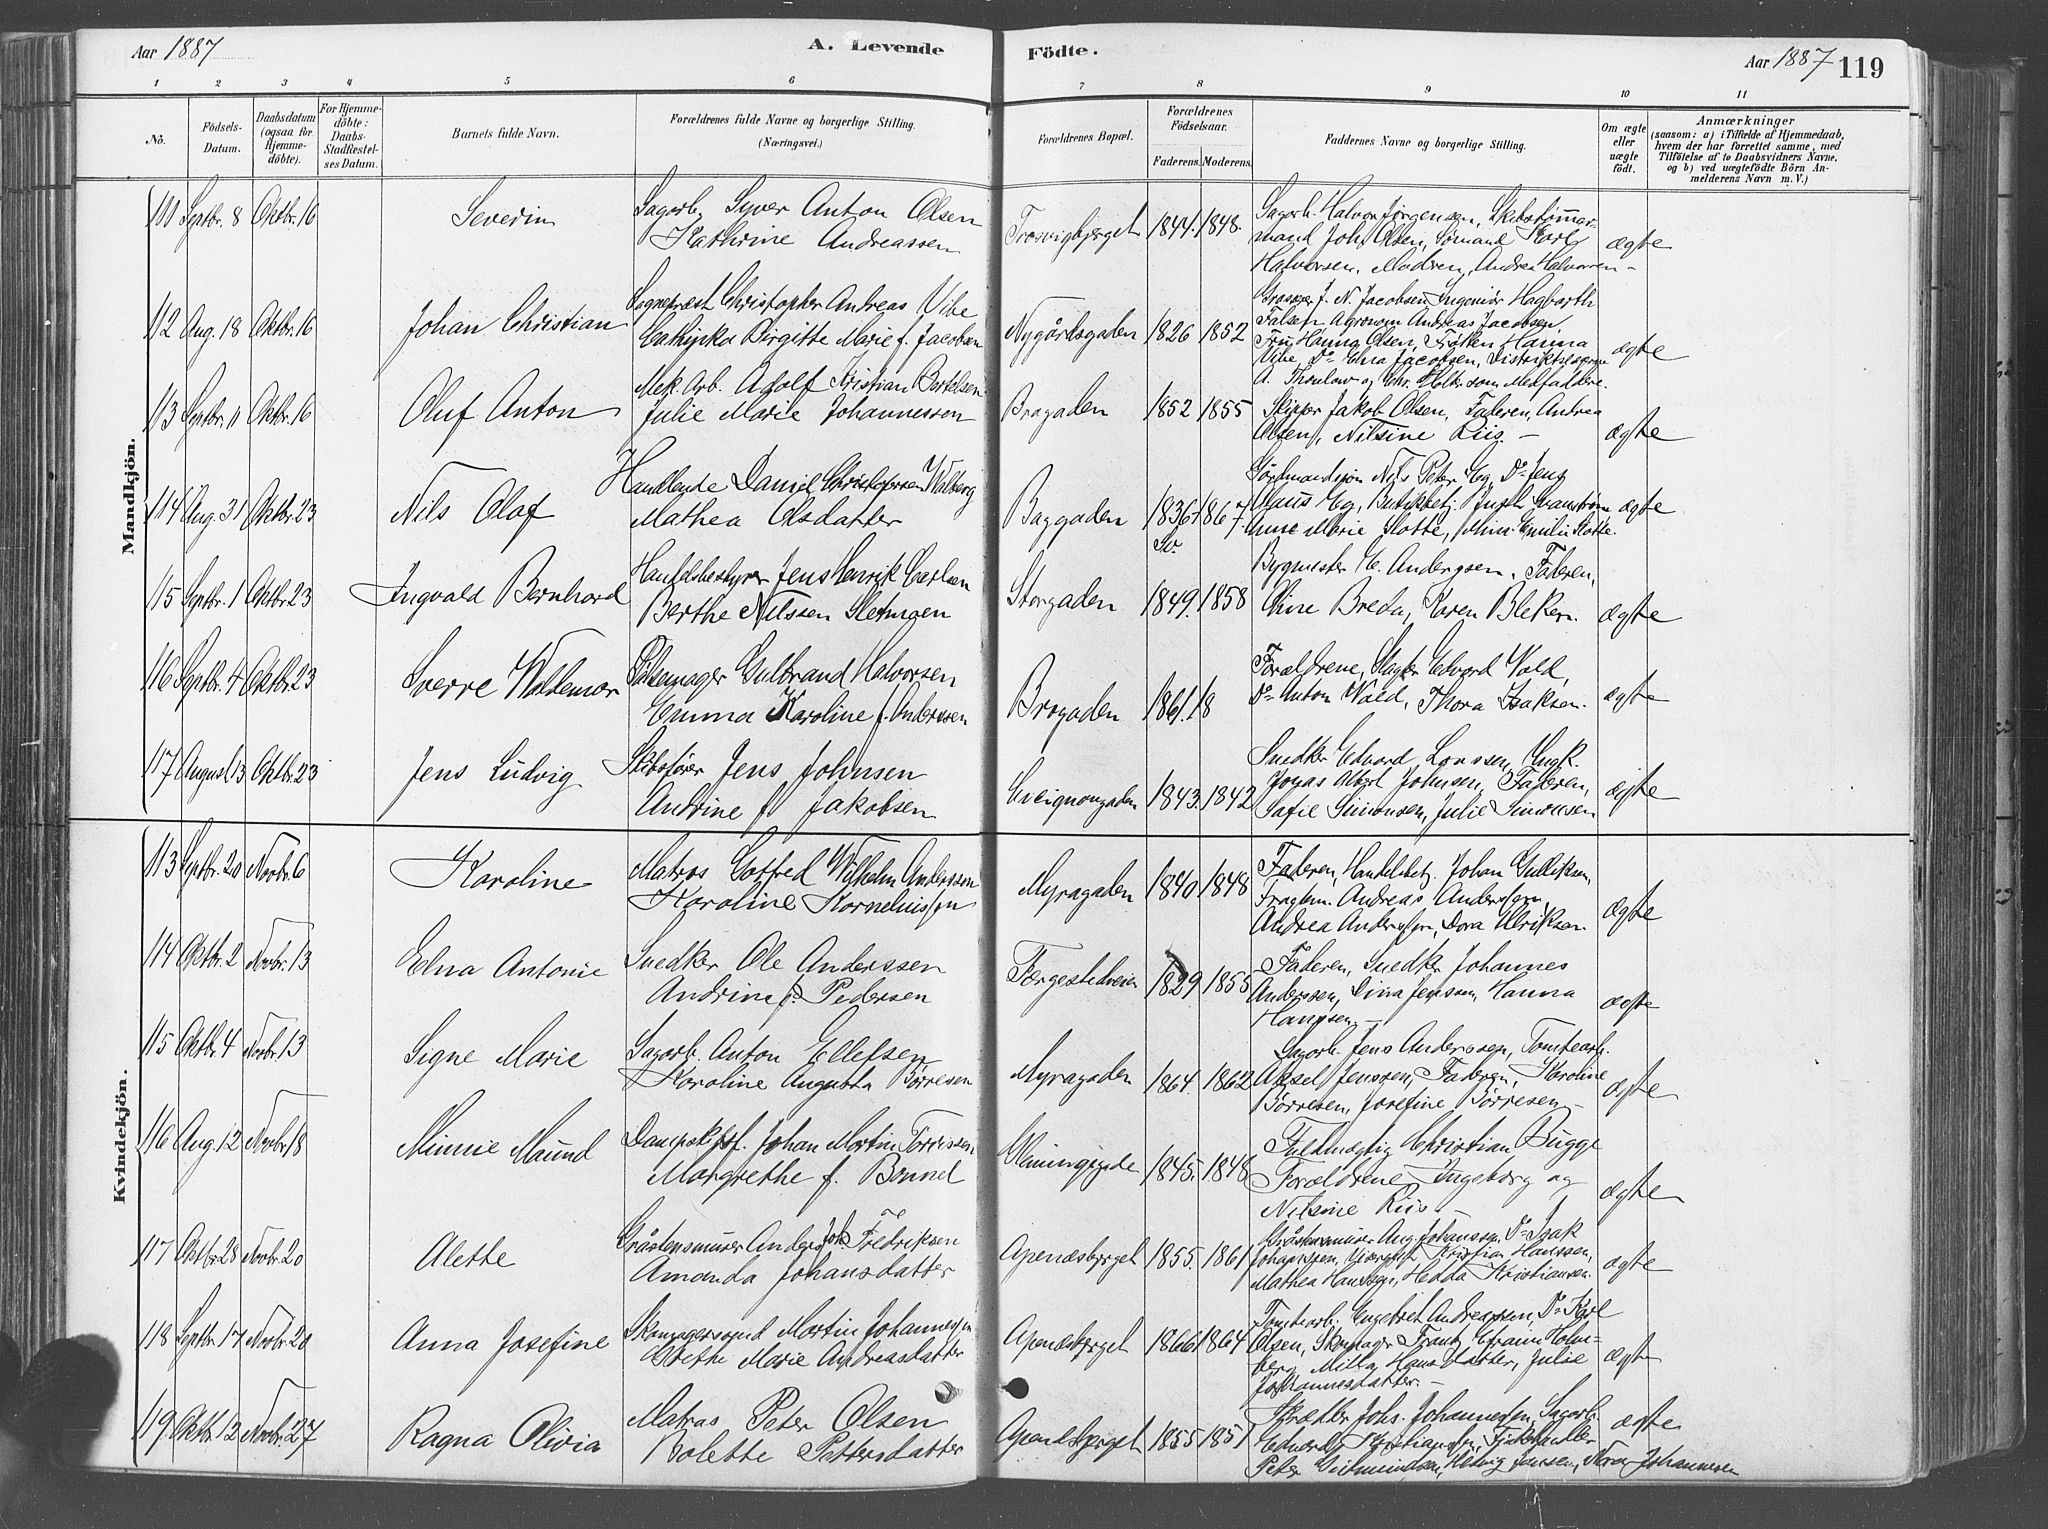 Aar 1887
A. Levende
Födte.
Aar 1887
119
1 2 3 4 5 6 7 8 9 10 11
No.
Födsels-
Datum.
Daabsdatum
(ogsaa for
Hjemme-
döbte).
For Hjemme-
döbte:
Daabs-
Stadfæstel-
ses Datum.
Barnets fulde Navn.
Forældrenes fulde Navne og borgerlige Stilling.
(Næringsvei.)
Forældrenes Bopæl.
Forældrenes
Födselsaar.
Faderens. Moderens.
Faddernes Navne og borgerlige Stilling.
Om ægte
eller
uægte
födt.
Anmærkninger
(saasom: a) i Tilfælde af Hjemmedaab,
hvem der har forrettet samme, med
Tilföielse af to Daabsvidners Navne,
og b) ved uægtefödte Börn An-
melderens Navn m. V.)
Mandkjön.
111 Septbr. 8 Oktbr. 16 Severin
Sagarb. Syver Anton Olsen
Kathrine Andreassen
Trosvigbjerget 1844. 1848.
Sagarb. Halvor Jørgensen, Skibstømmer-
mand Johs Olsen, Sømand Karl
Halvorsen, Modren, Andrea Halvorsen –
ægte
112 Aug. 18 Oktbr. 16 Johan Christian
Sognepræst Christopher Andreas Vibe
Cathinka Birgitte Marie f. Jacobsen
Nygårdsgaden 1826 1852
Grosser J. N. Jacobsen, Ingeniør Hagbarth
Falsen, Agronom Andreas Jacobsen,
Fru Hanna Olsen, Frøken Hanna
Vibe, Do Edna Jacobsen, Distriktslæge
A. Thaulow og Chr. Holter som Medfaddere.
ægte
113 Septbr. 11 Oktbr. 16 Oluf Anton
Mek. Arb. Adolf Kristian Bertelsen
Julie Marie Johannessen
Brogaden 1852 1855
Skipper Jakob Olsen, Faderen, Andrea
Olsen, Nilsine Riis. –
ægte
114 Aug. 31 Oktbr. 23 Nils Olaf
Handlende Daniel Christophersen Walberg
Mathea Olsdatter
Baggaden 1836 1867
Sv.
Gårdmandssøn Nils Peter Eg, Do Jens
Maus Eg, Butikbetj. Svanstrøm
Anne Marie Slotte, Emilie Slotte.
ægte
115 Septbr. 1 Oktbr. 23 Ingvald Bernhard
Handelsbestyrer Jens Henrik Carlsen
Berthe Nilssen Sletmoen
Storgaden 1849. 1858
Bygmester C. Anderssen, Faderen,
Oline Breda, Karen Bleken.
ægte
116 Septbr. 4 Oktbr. 23 Sverre Waldemar
Pølsemager Gulbrand Halvorsen
Emma Karoline f. Anderssen
Brogaden 1861. 18
Forældrene, Slagter Edvard Wold,
Do Anton Wold, Thora Isaksen.
ægte
117 August 13 Oktbr. 23 Jens Ludvig
Skibsfører Jens Johnsen
Andrine f. Jakobsen
Cicignongaden 1843. 1842
Snedker Edvard Lorssen, Ungk.
Jonas Albert Johnsen, Faderen,
Sofie Simonsen, Julie Simonsen
ægte
Kvindekjön.
113 Septbr. 20 Novbr. 6 Karoline
Matros Gotfred Wilhelm Anderssen
Karoline Kornelinssen
Myragaden 1840 1848
Faderen, Handelsbetj. Johan Gulliksen,
Fragtem. Andreas Anderssen,
Andrea Anderssen, Dora Ulriksen.
ægte
114 Oktbr. 2 Novbr. 13 Edna Antonie
Snedker Ole Anderssen
Andrine f. Pedersen
Færgestedveien 1829 1855
Faderen, Snedker Johannes
Anderssen, Dina Jenssen, Hanna
Hanssen –
ægte
115 Oktbr. 4 Novbr. 13 Signe Marie
Sagarb. Anton Ellefsen
Karoline Augusta Børresen
Myragaden 1864. 1862
Sagarb. Jens Anderssen, Tomtearb.
Aksel Jenssen, Faderen, Karoline
Børresen, Josefine Børresen –
ægte
116 Aug. 12 Novbr. 18 Minnie Maund
Dampskibsf. Johan Martin Torressen
Margrethe f. Bonnel
1845. 1848
Fuldmægtig Christian Bugge
Forældrene, Ingeborg og
Nilsine Riis
ægte
117 Oktbr. 28 Novbr. 20 Alette
Gråstensmurer Anders Joh. Fredriksen
Amanda Johansdatter
Apenæsbjerget 1855. 1861
Gråstensmurer Aug. Johanssen, Do Isak
Johanssen, Kristian Hanssen,
Mathea Hanssen, Hedda Kristiansen.
ægte
118 Septbr. 17 Novbr. 20 Anna Josefine
Skomagersvend Martin Johannessen
Grethe Marie Andreasdatter
Apenæsbjerget 1866 1864
Tomtearb. Engebret Andreassen, Do Karl
Olsen, Skomager Frantz Efraim Holm-
berg, Milla Hansdatter, Julie
Johannesdatter. –
ægte
119 Oktbr. 12 Novbr. 27 Ragna Olivia
Matros Peter Olsen
Bolette Pettersdatter
Apenæsbjerget 1855 1851
Skrædder Johs. Johannessen, Sagarb.
Edvard Kristiansen, Fiskehandler
Peter Gudmundsen, Helvig Jenssen, Nora Johannesen
ægte